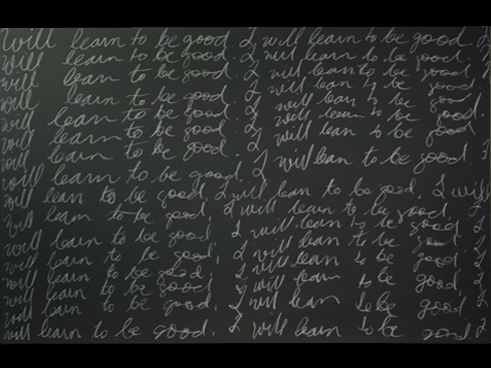 will learn to be good. I will learn to be good. I
will learn to be good. I will learn to be good.
will learn to be good. I will learn to be good.
will learn to be good. I will learn to be good
will learn to be good. I will learn to be good
will learn to be good. I will learn to be good.
will learn to be good. I will learn to be good. I
will learn to be good. I
will learn to be good, I will learn to be good, I will
will learn to be good, I will learn to be good, I
will learn to be good. I will learn to be good. I
will learn to be good, I will learn to be good, I
will learn to be good, I will learn to be good, I
will learn to be good, I will learn to be good, I
will learn to be good. I will learn to be good. I